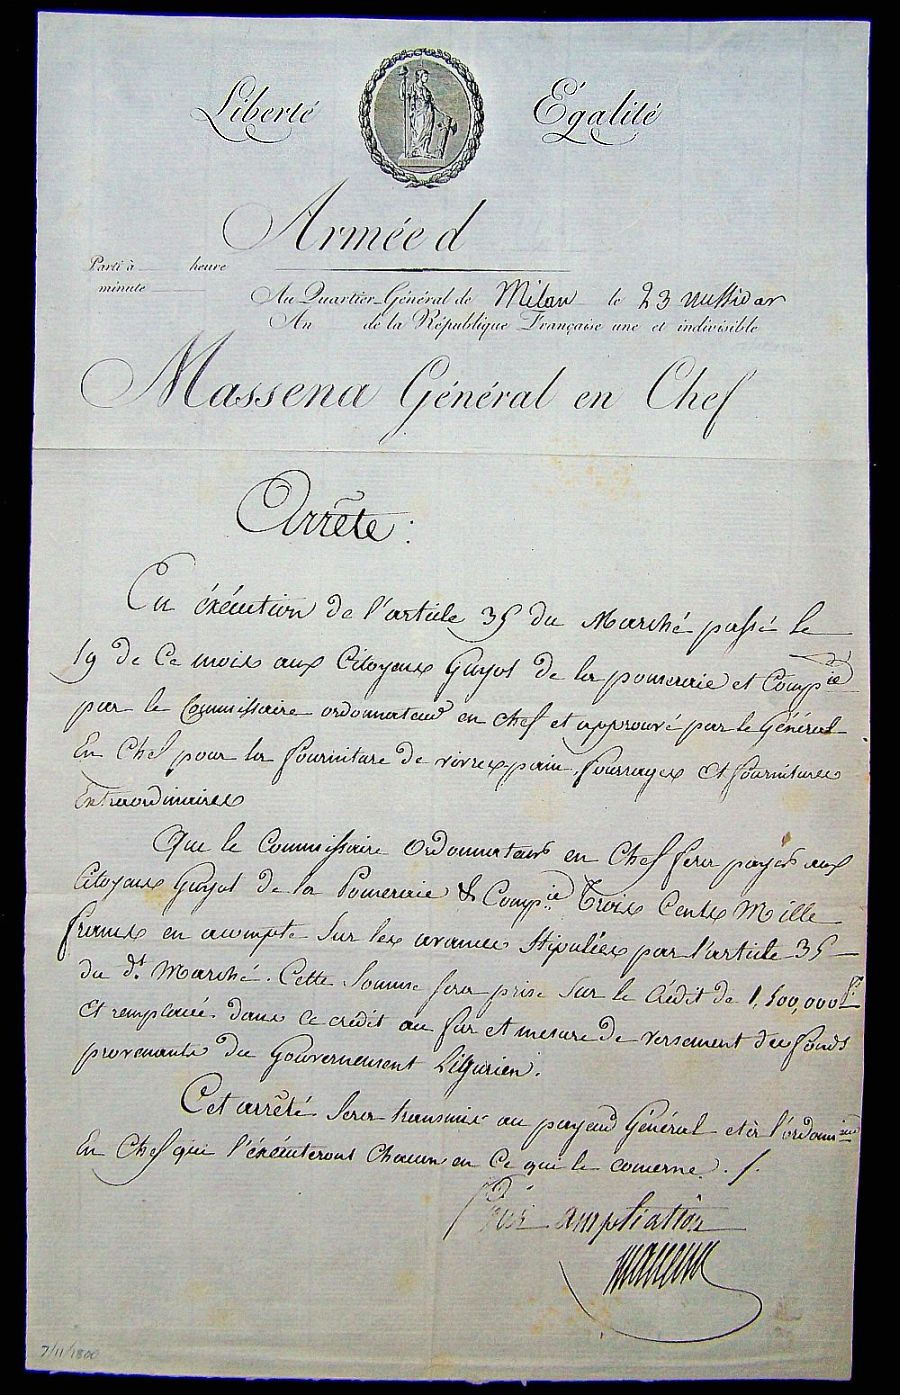 Liberté Égalité
Armée d
Parti à heure
minute
Au Quartier-Général de Milan le 23 Messidor
An de la République Française une et indivisible
Massena Général en Chef
Arrête :
En éxécution de l'article 35 du Marché passé le
19 de ce mois aux Citoyens Guyot de la pomeraie et Comp.ie
par le Commissaire ordonnateur en chef et approuvé par le Général
En Chef pour la fourniture de vivres pain, fourrages et fournitures
Extraordinaires
Que le Commissaire Ordonnateur en Chef fera payer aux
Citoyens Guyot de la Pomeraie & Comp.ie Trois Cents Mille
francs en acompte sur les avances stipulées par l'article 35
du d.t Marché. Cette somme sera prise sur le Crédit de 1,500,000 f.
Et remplacée dans ce crédit au fur et mesure de versement des fonds
provenants du Gouvernement Ligurien.
Cet arrêté sera transmis au payeur Général et à l'ordonn.eur
En Chef qui l'éxécuteront chacun en ce qui le concerne. /.
Pour ampliation
Massena
7/11/1800